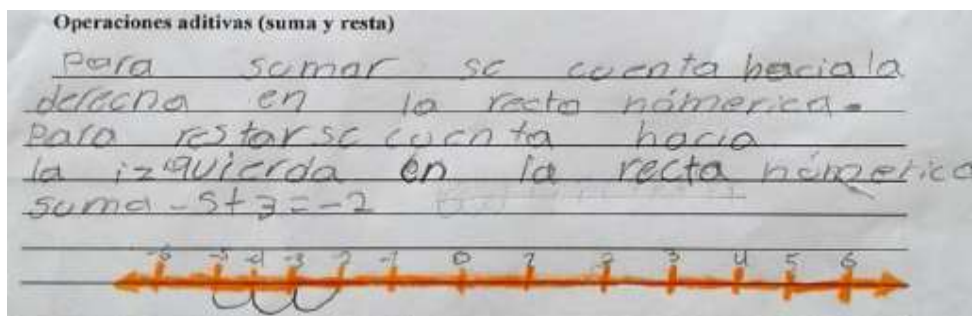 Operaciones aditivas (suma y resta)
Para sumar se cuenta hacia la
derecha en la recta númerica.
Para restar se cuenta hacia
la izquierda en la recta númerica
suma -5+3=-2
-6 -5 -4 -3 -2 -1 0 1 2 3 4 5 6